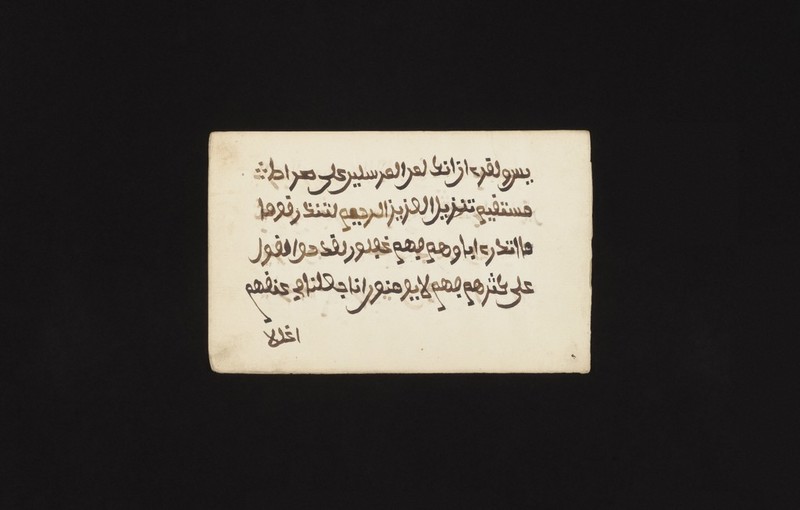 يس ولقرءان انك لمن المرسلين على صراط
مستقيم تنزيل العزيز الرحيم لتنذر قوما
ما انذر ءاباوهم فهم غفلون لقد حق القول
على كثرهم فهم لا يومنون انا جعلنا في عنقهم
اغللا